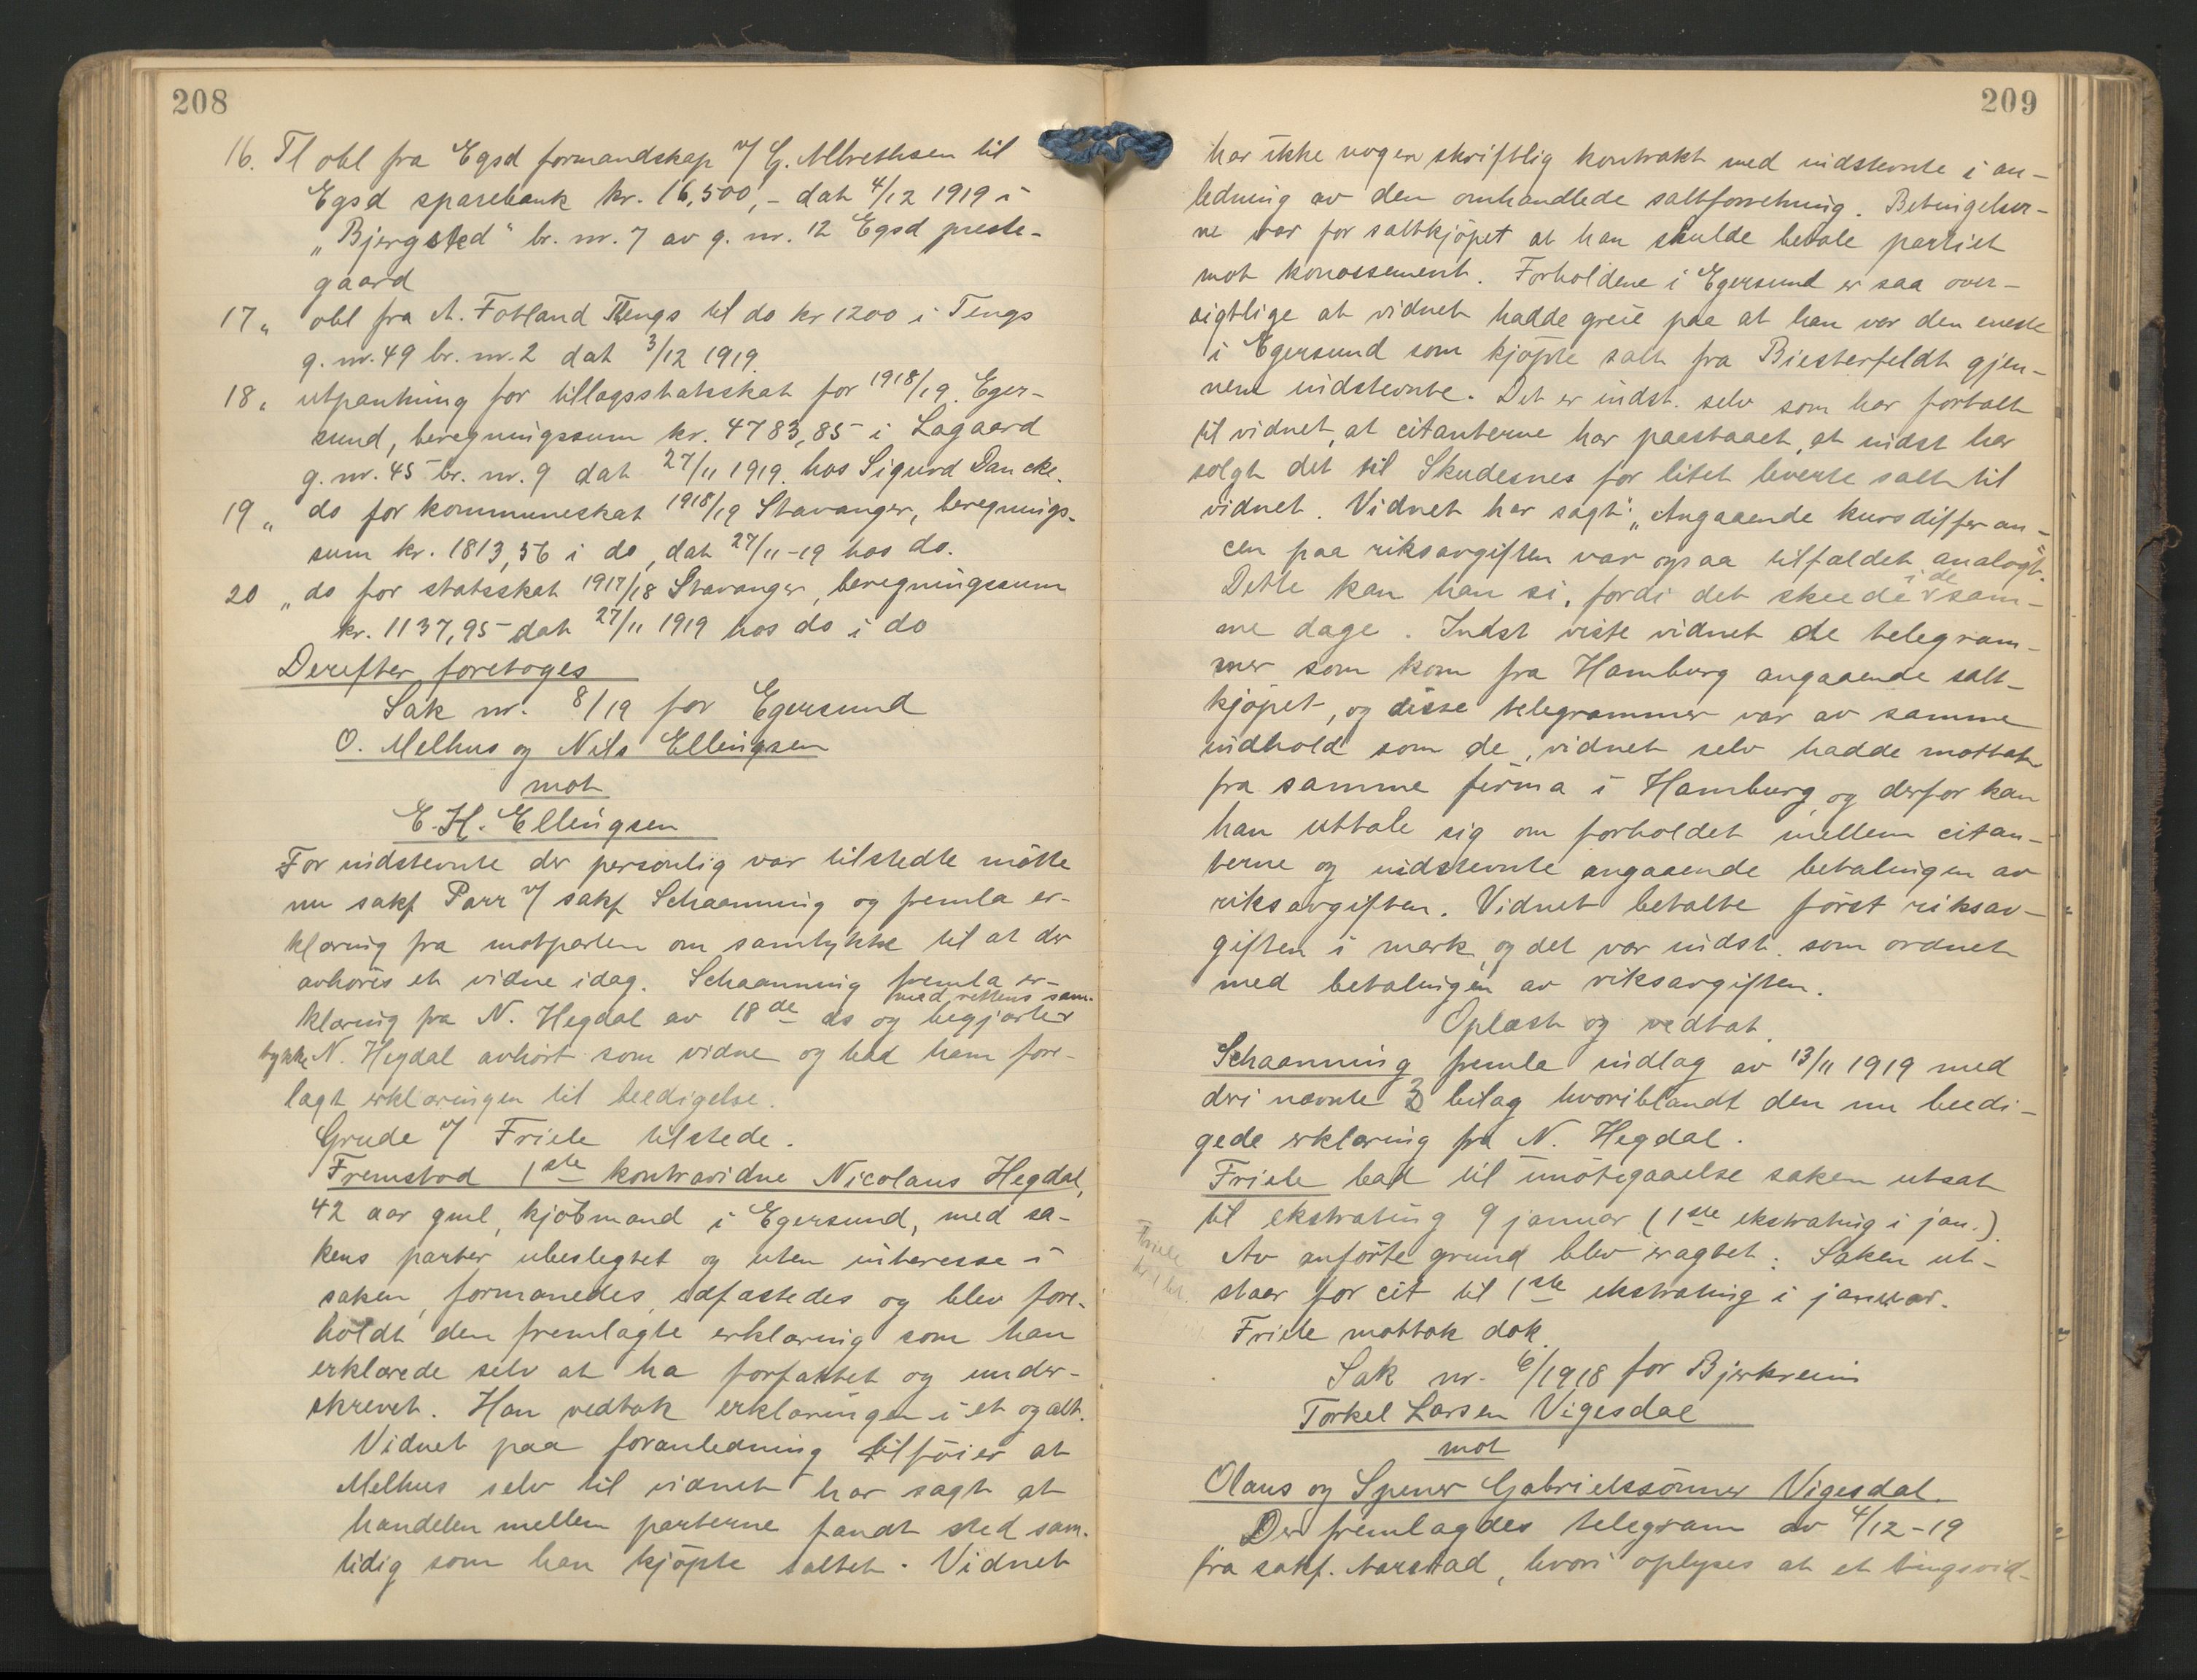 208
16. Tl obl fra Egsd formandskap v/ G. Albrethsen til
Egsd sparebank kr. 16,500,- dat 4/12 1919 i
„Bjergsted" br. nr. 7 av g. nr. 12 Egsd preste-
gaard
17 „ obl fra A. Fotland Tengs til do kr 1200 i Tengs
g. nr. 49 br. nr. 2 dat 3/12 1919.
18 „ utpantning for tillagsstatsskat for 1918/19. Eger-
sund, beregningssum kr. 4783,85 i Lagaard
g. nr. 45 br. nr. 9 dat 27/11 1919. hos Sigurd Dancke.
19 „ do for kommuneskat 1918/19 Stavanger, beregnings-
sum kr. 1813,56 i do, dat 27/11-19 hos do.
20 „ do for statsskat 1917/18 Stavanger, beregningssum
kr. 1137,95 dat 27/11 1919 hos do i do
Derefter foretoges
Sak nr. 8/19 for Egersund
O. Melhus og Nils Ellingsen
mot
E. H. Ellingsen
For indstevnte der personlig var tilstedte mötte
nu sakf Parr v/ sakf Schaanning og fremla er-
klæring fra motparten om samtykke til at der
avhöres et vidne idag. Schaanning fremla er-
klæring fra N. Hegdal av 18de ds og begjærter med rettens sam-
tykke N. Hegdal avhört som vidne og bad ham fore-
lagt erklæringen til beedigelse.
Grude v/ Friele tilstede.
Fremstod 1ste kontravidne Nicolaus Hegdal,
42 aar gml, kjöbmand i Egersund, med sa-
kens parter ubeslegtet og uten interesse i
saken, formanedes, edfæstedes og blev fore-
holdt den fremlagte erklæring som han
erklærede selv at ha forfattet og under-
skrevet. Han vedtok erklæringen i et og alt.
Vidnet paa foranledning tilföier at
Melhus selv til vidnet har sagt at
handelen mellem parterne fandt sted sam-
tidig som han kjöpte saltet. Vidnet
209
har ikke nogen skriftlig kontrakt med indstevnte i an-
ledning av den omhandlede saltforretning. Betingelser-
ne var for saltkjöpet at han skulde betale partiet
mot konossement. Forholdene i Egersund er saa over-
sigtlige at vidnet hadde greie paa at han var den eneste
i Egersund som kjöpte salt fra Biesterfeldt gjen-
nem indstevnte. Det er indst. selv som har fortalt
til vidnet, at citanterne har paastaaet, at indst har
solgt det til Skudesnes for litet leverte salt til
vidnet. Vidnet har sagt: „Angaaende kursdifferan-
cen paa riksavgiften var ogsaa tilfældet analogt."
Dette kan han si, fordi det skeede i de sam-
me dage. Indst viste vidnet de telegram-
mer som kom fra Hamburg angaaende salt-
kjöpet, og disse telegrammer var av samme
indhold som de, vidnet selv hadde mottat
fra samme firma i Hamburg, og derfor kan
han uttale sig om forholdet mellem citan-
terne og indstevnte angaaende betalingen av
riksavgiften. Vidnet betalte först riksav-
giften i mark, og det var indst. som ordnet
med betalingen av riksavgiften.
Oplæst og vedtat.
Schaanning fremla indlæg av 13/11 1919 med
deri nævnte 3 bilag hvoriblandt den nu beedi-
gede erklæring fra N. Hegdal.
Friele bad til imötegaaelse saken utsat
til ekstrating 9 januar (1ste ekstrating i jan.).
Av anförte grund blev eragtet: Saken ut-
staar for cit til 1ste ekstrating i januar.
Friele
Friele mottok dok.
Sak nr. 6/1918 for Bjerkreim
Torkel Larsen Vigesdal
mot
Olaus og Spener Gabrielssönner Vigesdal.
Der fremlagdes telegram av 4/12-19
fra sakf. Aarstad, hvori oplyses at et tingsvid-